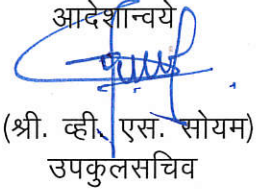 आदेशान्वये
(श्री. व्ही. एस. सोयम)
उपकुलसचिव